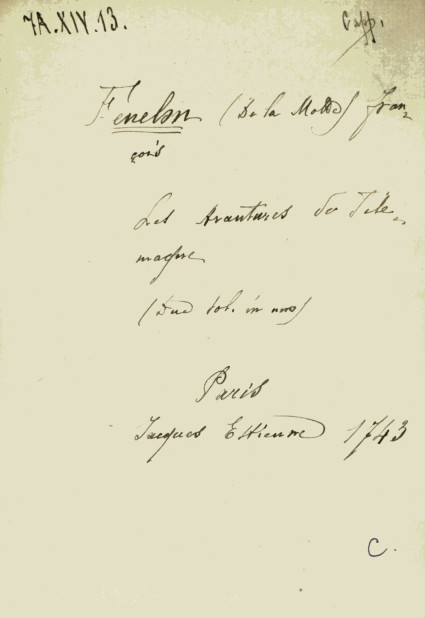 7A.XIV.13. Capp.
Fénelon (De la Motte) Fran-
çois
Les Avantures de Télé-
maque
(Duo vol. in uno)
Paris
Jacques Estienne 1743
C.